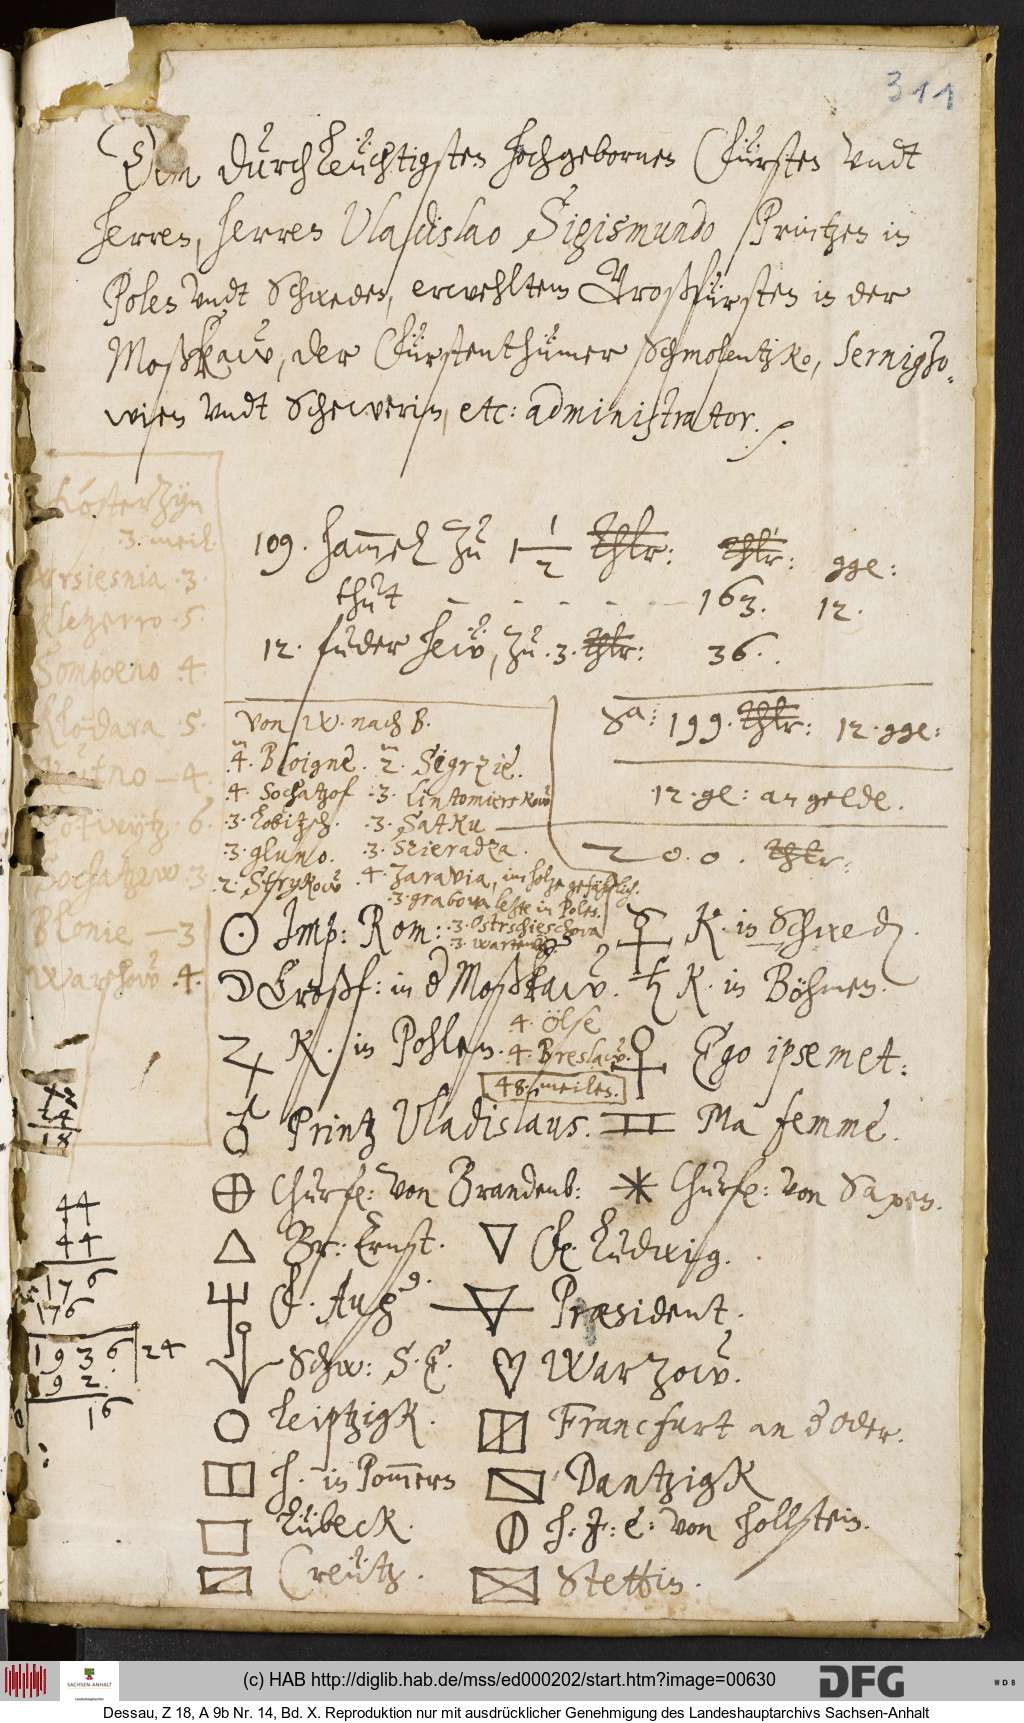 311
Dem durchleuchtigsten hochgebornen Fürsten Vndt
Herren, Herren Vladislao Sigismundo Printzen in
Polen Vndt Schweden, erwehltem Großfürsten in der
Moßkaw, der Fürstenthümer Schmolentzko, Sernigho-
wien Vndt Schewerin, etc: administrator.
Kosterzÿn
.3. meil
Wrsiesnia .3.
Kletzerro .5.
Sompoeno .4.
Klodara .5.
Kutno — 4.
Lowÿtz .6.
Sochatzow .3.
Blonie — 3
Warschow .4.
109. Hammel zu 1 1/2 thlr: thlr: gge:
thut - - - - 163. 12.
12. fuder Heiw, zu .3. thlr: 36.
Sa: 199. thlr: 12. gge:
12. ge: an gelde.
200. thlr:
Von W. nach B.
.4. Bloigne. .2. Sigrzie.
.4. Sochatzof .3. Lintomierskow
.3. Lobitzsch. .3. Satku
.3. gluno. .3. Szieradza.
.2. Strykow .4. Zaravia, im holze gefährlich.
.3. grabowa letzte in Polen.
.3. Ostrschieschova
.3. Wartenberg
4. Ölse
.4. Breslaw.
48. meilen.
☉ Imp: Rom: ☿ K. in Schweden.
☽ Großf: in d Moßkaw. ♄ K. in Böhmen.
♃ K. in Pohlen. ♀ Ego ipsemet.
♂ Printz Vladislaus. ♊ Ma femme.
⊕ Churf: von Brandenb: * Churf: von Saxen.
△ Br: Ernst. ▽ F. Ludwig.
F. Aug9. Præsident.
Schw: S. E. ♡ Warzow.
○ Leiptzigk. Francfurt an d Oder.
H. in Pommern Dantzigk
□ Lübeck. H. J: E: von Hollstein.
Creütz. Stettin.
42
24
18
44
44
176
176
1936 | 24
192
16
(c) HAB http://diglib.hab.de/mss/ed000202/start.htm?image=00630
SACHSEN-ANHALT
DFG
WDB
Dessau, Z 18, A 9b Nr. 14, Bd. X. Reproduktion nur mit ausdrücklicher Genehmigung des Landeshauptarchivs Sachsen-Anhalt